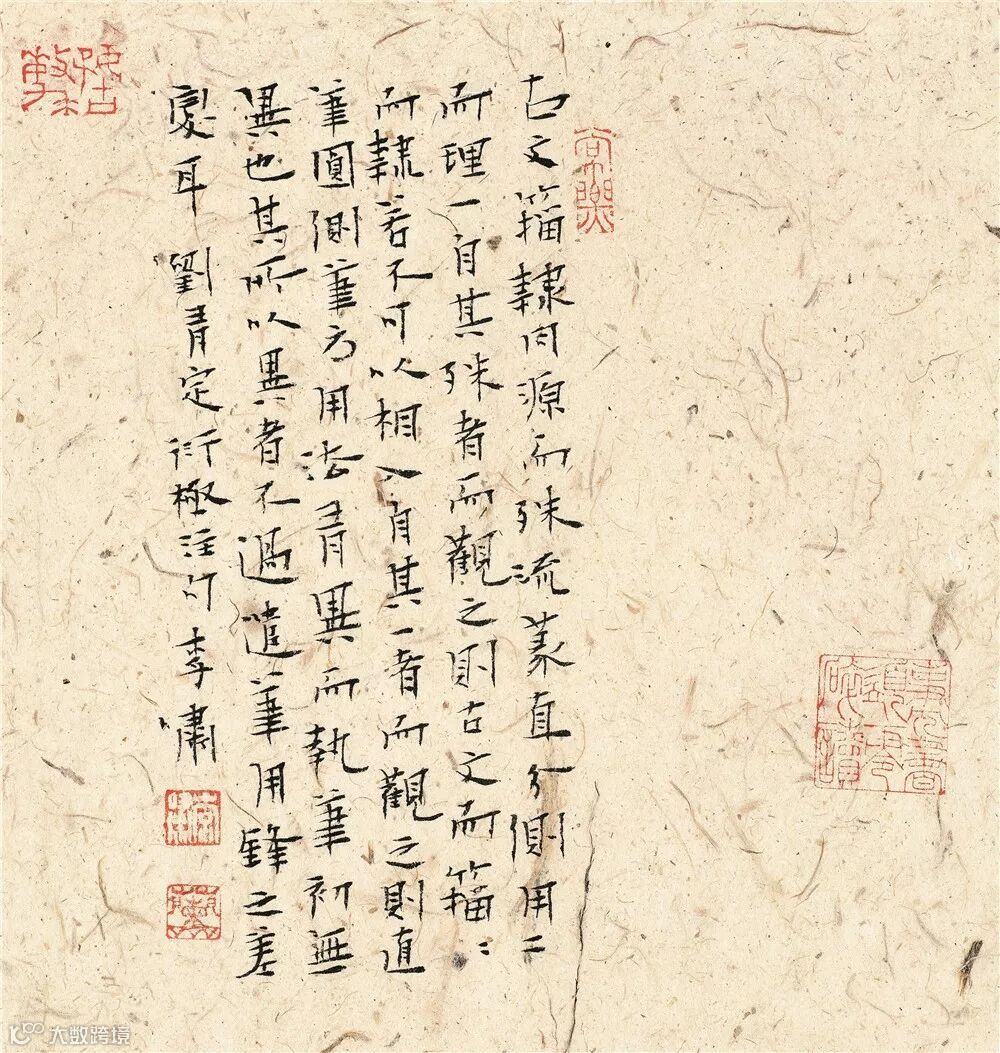 古文籀隸同源而殊流篆直分側用二
而理一自其殊者而觀之則古文而籀〻
而隸若不可以相入自其一者而觀之則直
筆圓側筆方用法有異而執筆初無
異也其所以異者不過遣筆用鋒之差
變耳 劉有定衍極注句 李嘯
大数跨境